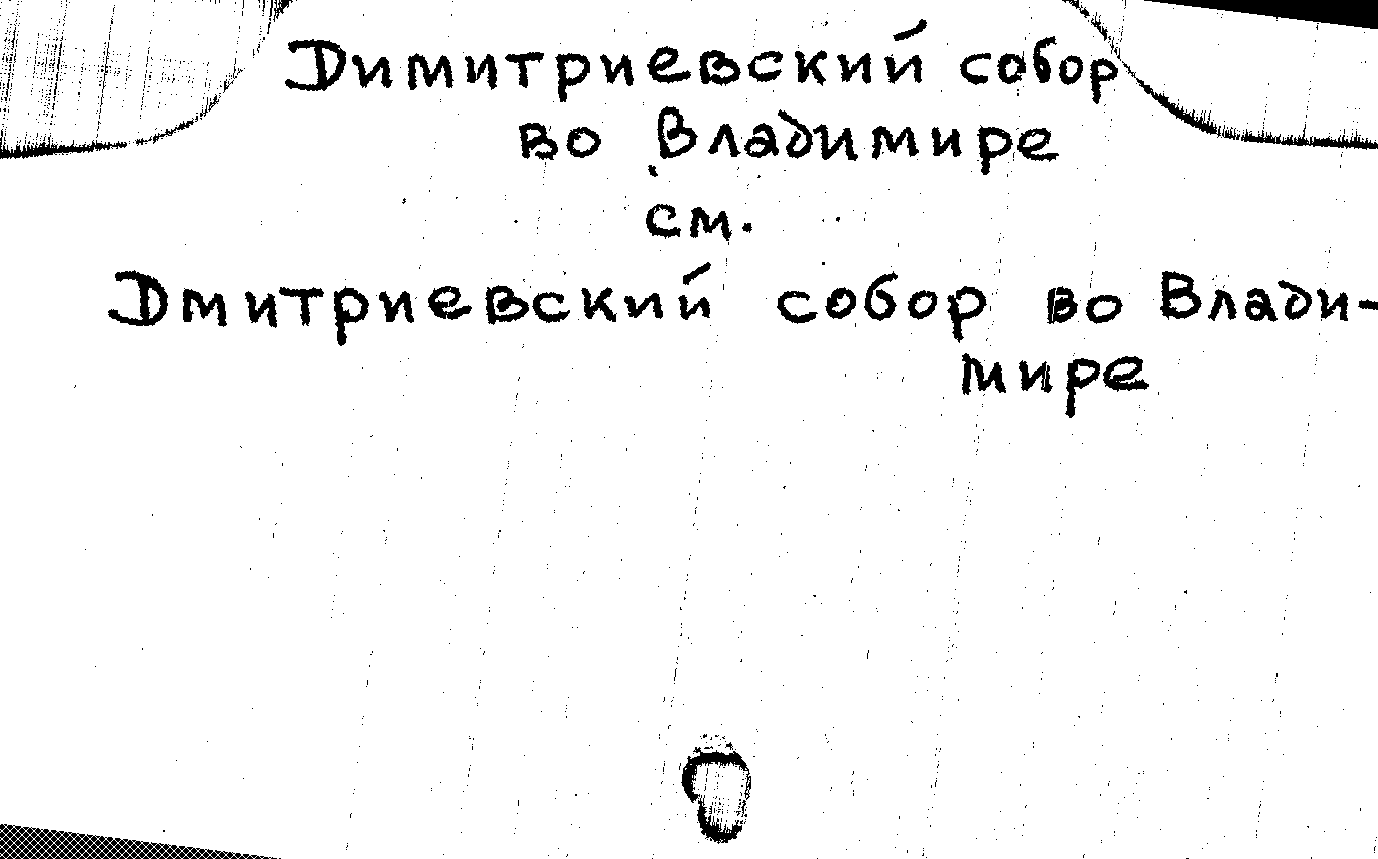 Димитриевский собор
во Владимире
см.
Дмитриевский собор во Влади-
мире